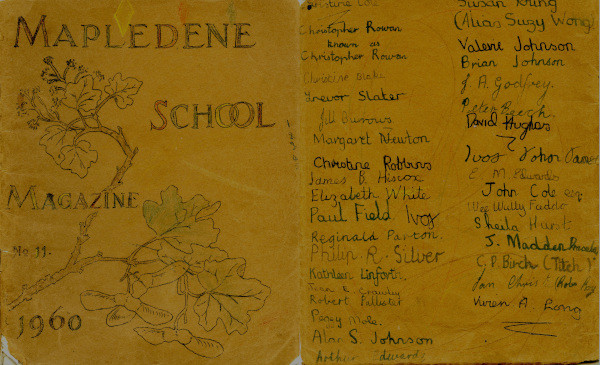 MAPLEDENE
SCHOOL
MAGAZINE
No. 11.
1960
Christine Cole
Christopher Rowan
known as
Christopher Rowan
Christine
Trevor Slater
Jill Burrows
Margaret Newton
Christine Robbins
James B. Hiscox
Elizabeth White
Paul Field Ivor
Reginald Parton.
Philip. R. Silver
Kathleen Linforth.
Robert Pallister
Peggy Mole.
Alan S. Johnson
Arthur Edwards
Susan
(Alias Suzy Wong)
Valerie Johnson
Brian Johnson
J. A. Godfrey.
Peter Beech.
David Hughes
Ivor John James
E. M. Edwards
John Cole
Wee Willy
Sheila Hurst
J. Madden
C. P. Birch (Titch)
Vivien A. Long